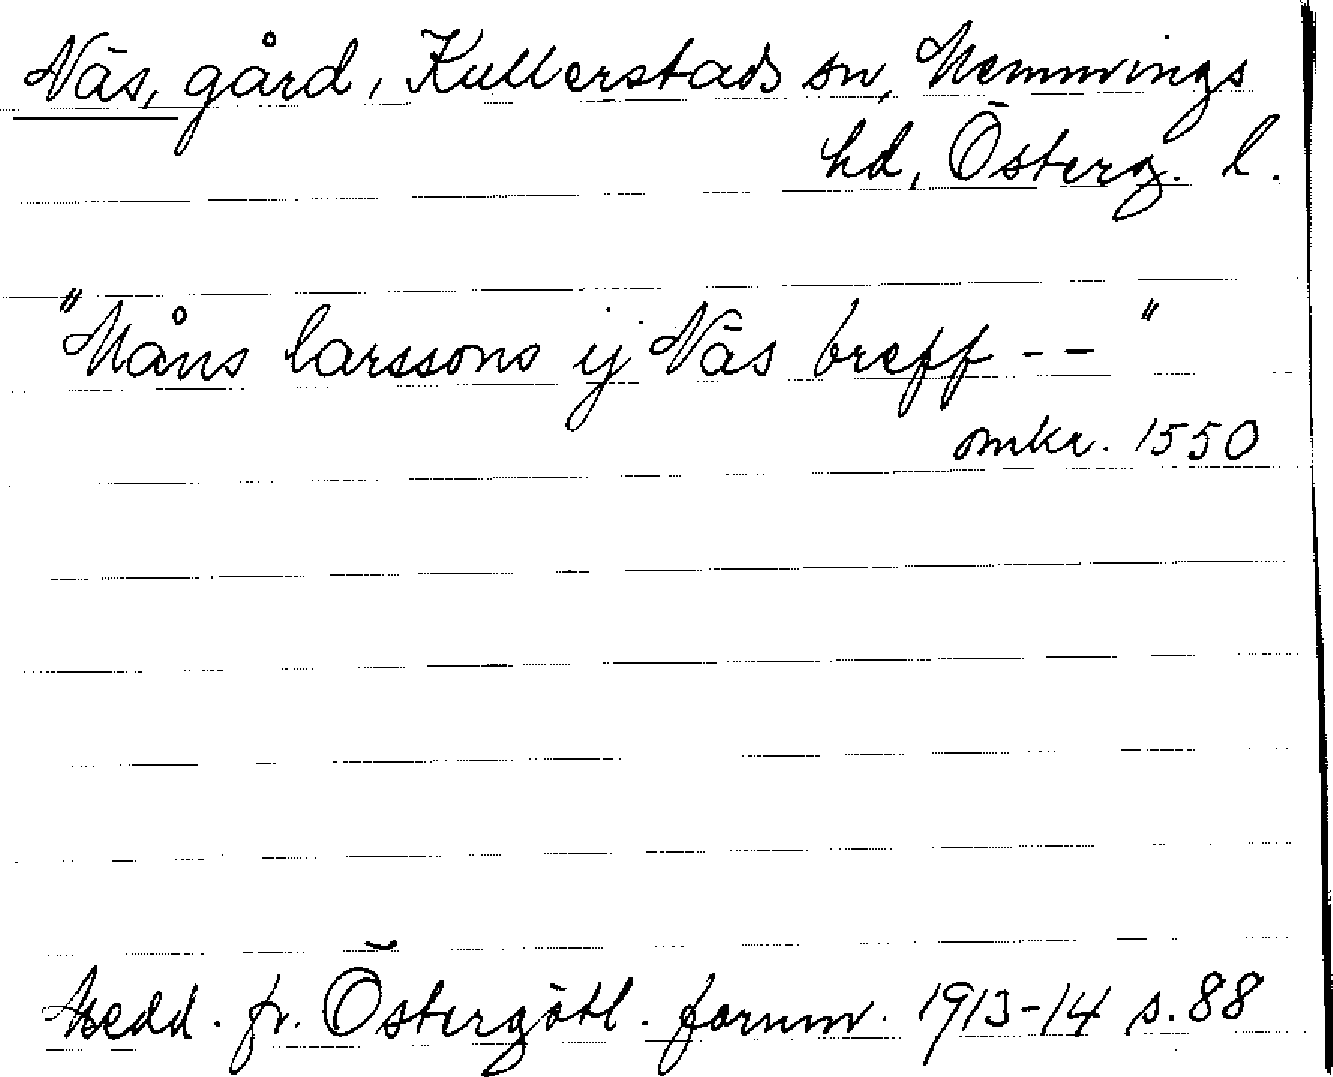 Näs, gård, Kullerstads sn, Memmings
hd, Österg. l.
"Måns larssons ij Näs breff - - "
omkr. 1550
Medd. fr. Östergötl. fornm. 1913-14 s. 88